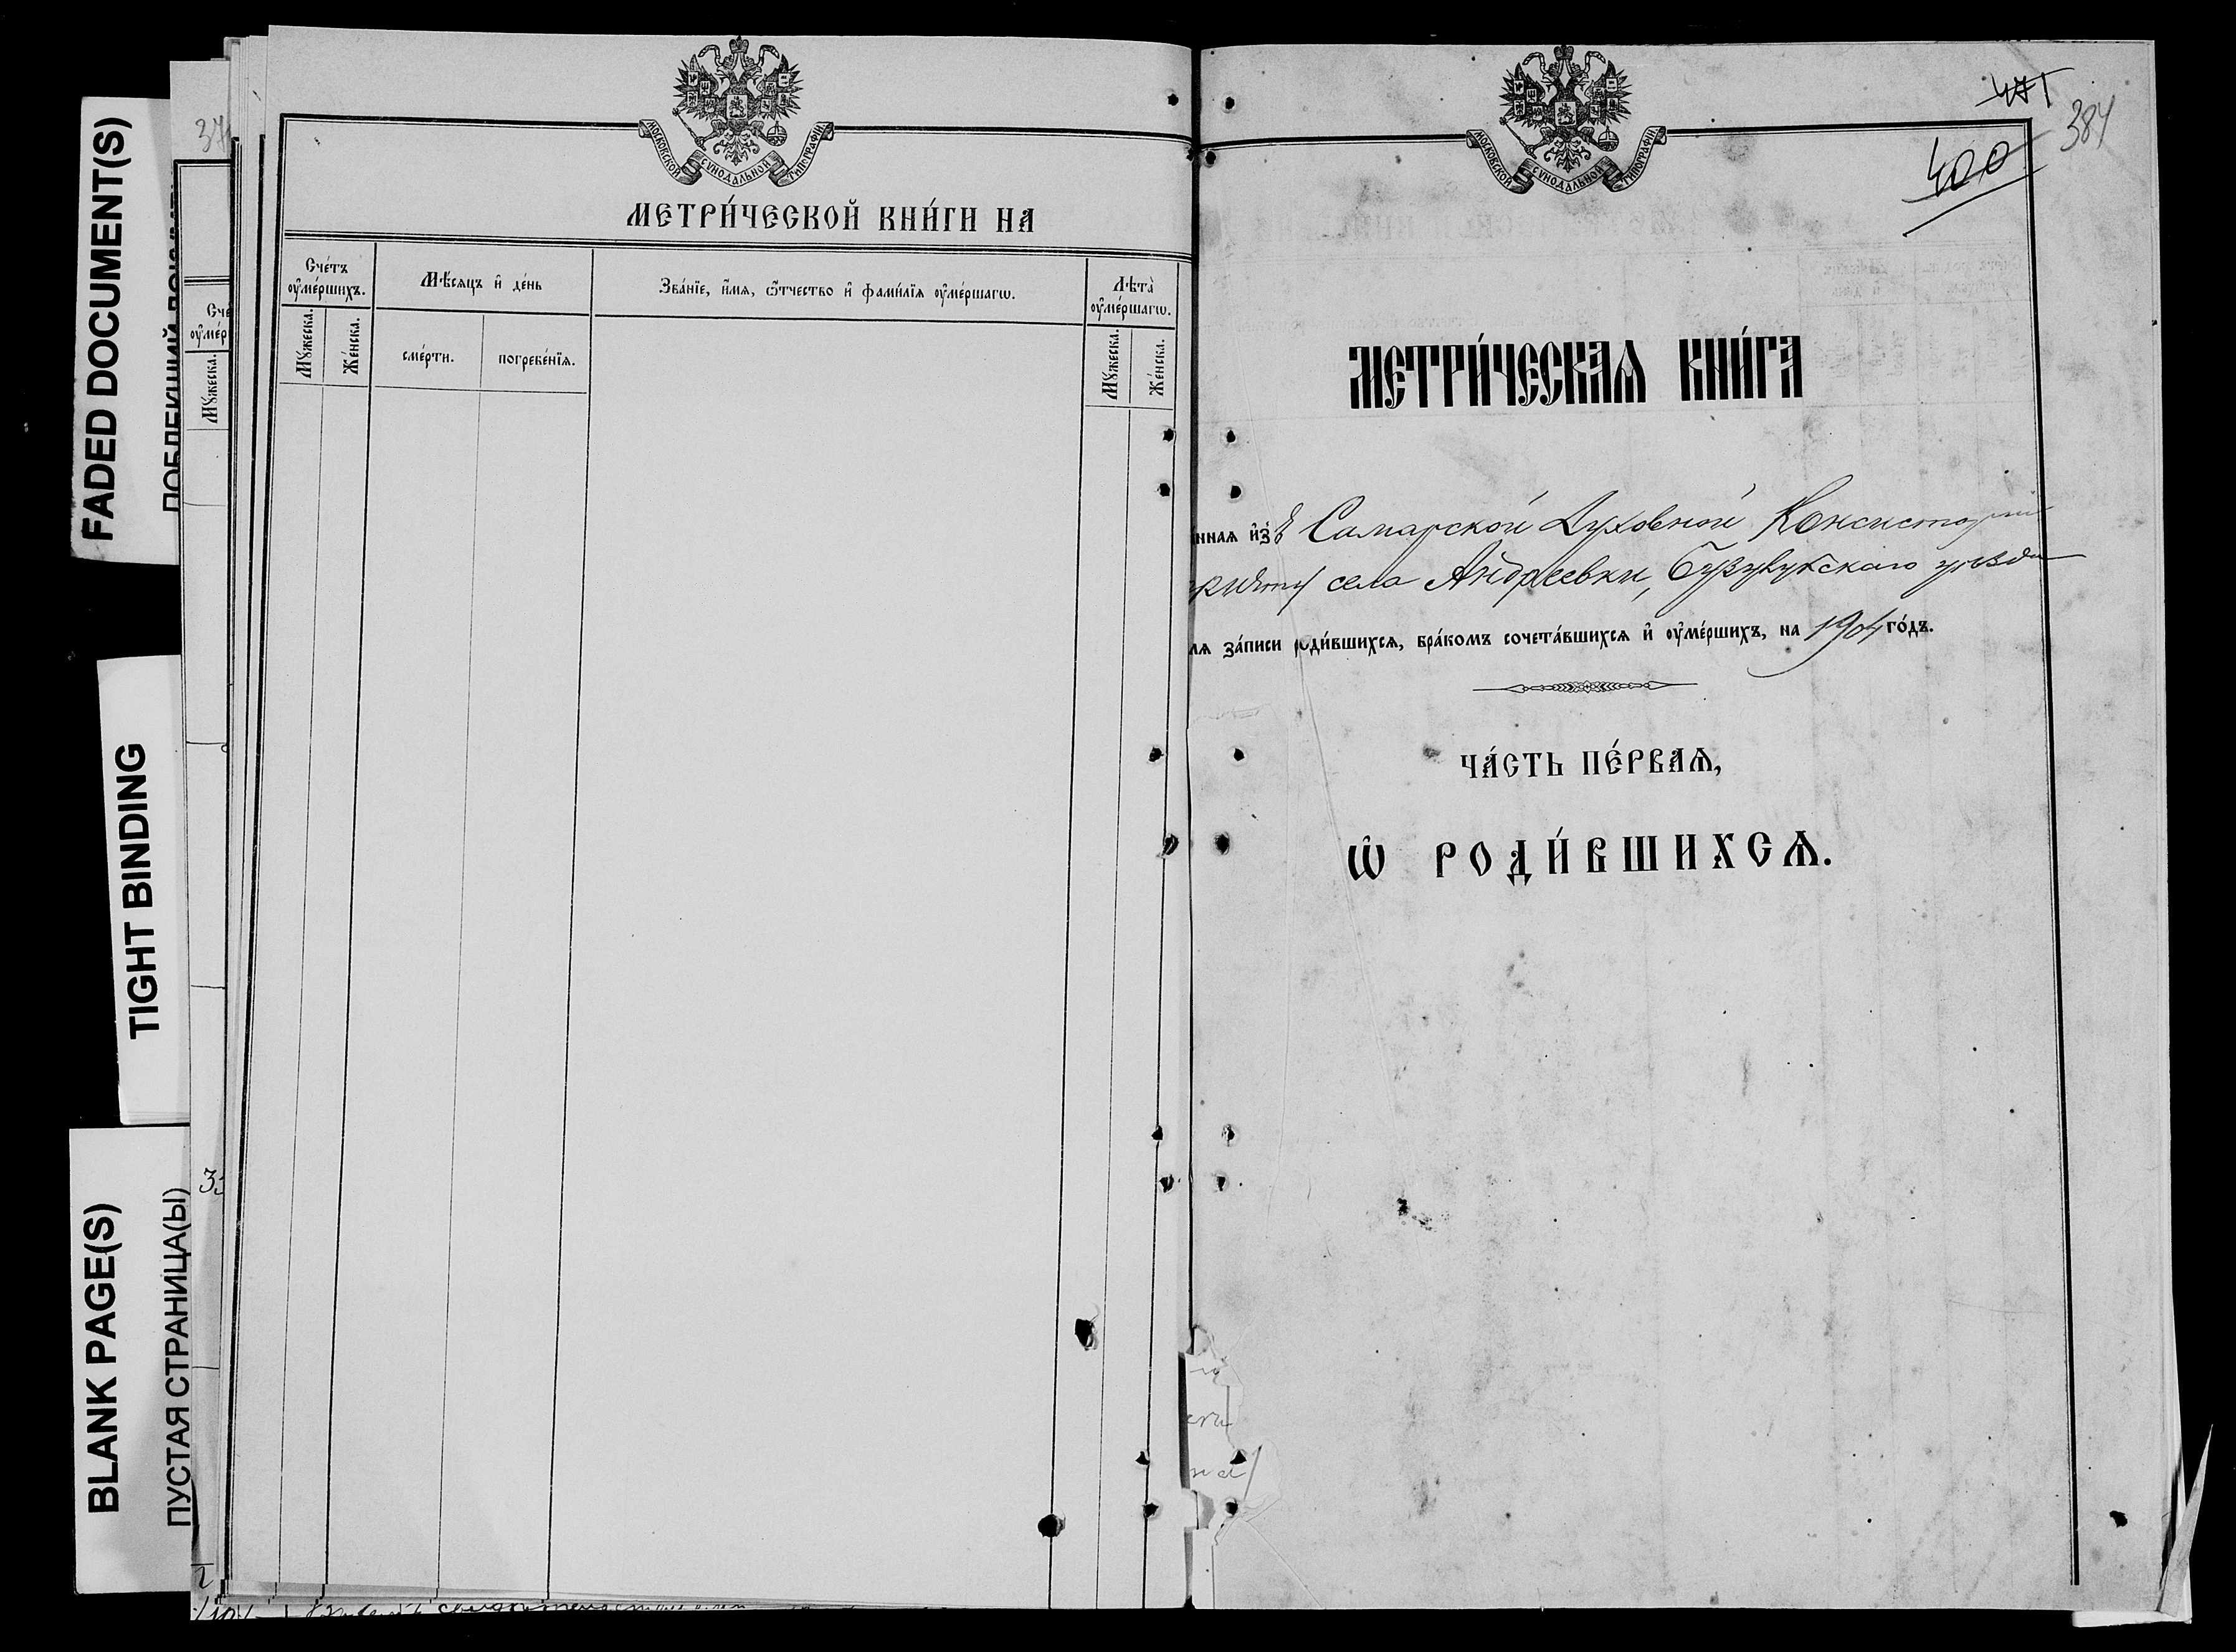 FADED DOCUMENT(S)
TIGHT BINDING
BLANK PAGE(S)
ПУСТАЯ СТРАНИЦА(Ы)
Мꙋжеска.
МОСКОВСКОЙ СѴНОДАЛЬНОЙ ТИПОГРАФІИ
МЕТРИ́ЧЕСКОЙ КНИ́ГИ НА
Сче́тъ оу҆ме́ршихъ.
Мѣ́сяцъ и҆ де́нь
Зва́нїе, и҆́мѧ, ѻ҆́тчество и҆ фами́лїѧ оу҆ме́ршагѡ.
Лѣ́та оу҆ме́ршагѡ.
Мꙋ́жеска.
Же́нска.
сме́рти.
погребе́нїѧ.
Мꙋ́жеска.
Же́нска.
471
384
400
МОСКОВСКОЙ СѴНОДАЛЬНОЙ ТИПОГРАФІИ
МЕТРИ́ЧЕСКАѦ КНИ́ГА
ннаѧ и҆зъ Самарской Духовной Консисторіи
причту села Андреевки, Бузулукскаго уѣзда
лѧ за́писи роди́вшихсѧ, бра́комъ сочета́вшихсѧ и҆ оу҆ме́ршихъ, на 1904 го́дъ.
ЧА́СТЬ ПЕ́РВАѦ,
Ѡ҆ РОДИ́ВШИХСѦ.